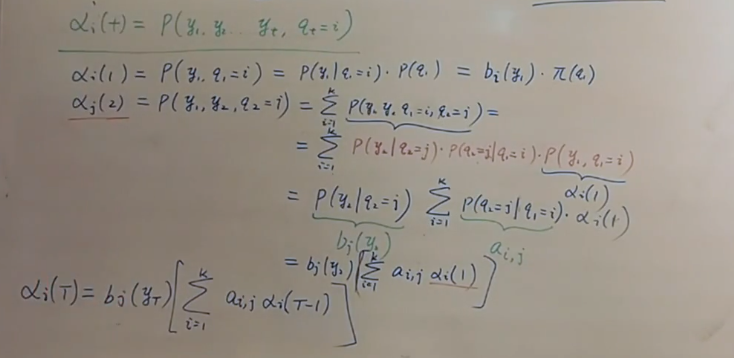 αi(t) = P(y₁, y₂ ... yt, qt=i)
αi(1) = P(y₁, q₁=i) = P(y₁|q₁=i) · P(q₁) = bi(y₁) · π(q₁)
αj(2) = P(y₁, y₂, q₂=i) = Σ_{i=1}^{k} P(y₁ y₂, q₁=i, q₂=j) =
= Σ_{i=1}^{k} P(y₂|q₂=j) · P(q₂=j|q₁=i) · P(y₁, q₁=i)
αi(1)
= P(y₂|q₂=j) Σ_{i=1}^{k} P(q₂=j|q₁=i) · αi(1)
bj(y₂) ai,j
= bj(y₂) [Σ_{i=1}^{k} ai,j αi(1)]
αj(T) = bj(yT) [Σ_{i=1}^{k} ai,j αi(T-1)]